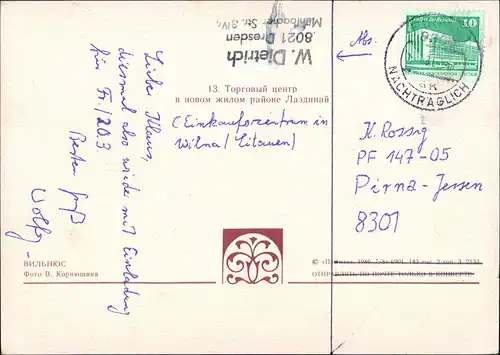 W. Dietrich
8021 Dresden
Mühlbacher Str. 3/IV
Abs.
10
NACHTRÄGLICH
13. Торговый центр
в новом жилом районе Лаздинай
(Einkaufszentrum in
Wilna/Litauen)
Liebe Klaus,
diesmal also wieder mit Einladung
für Fr/20.3
Besten Gruß
Wolfg.
K. Rossig
PF 147-05
Pirna-Jessen
8301
ВИЛЬНЮС
Фото В. Корнюшина
ОТПРАВЛЯТЬ ПО ПОЧТЕ ТОЛЬКО В КОНВЕРТЕ